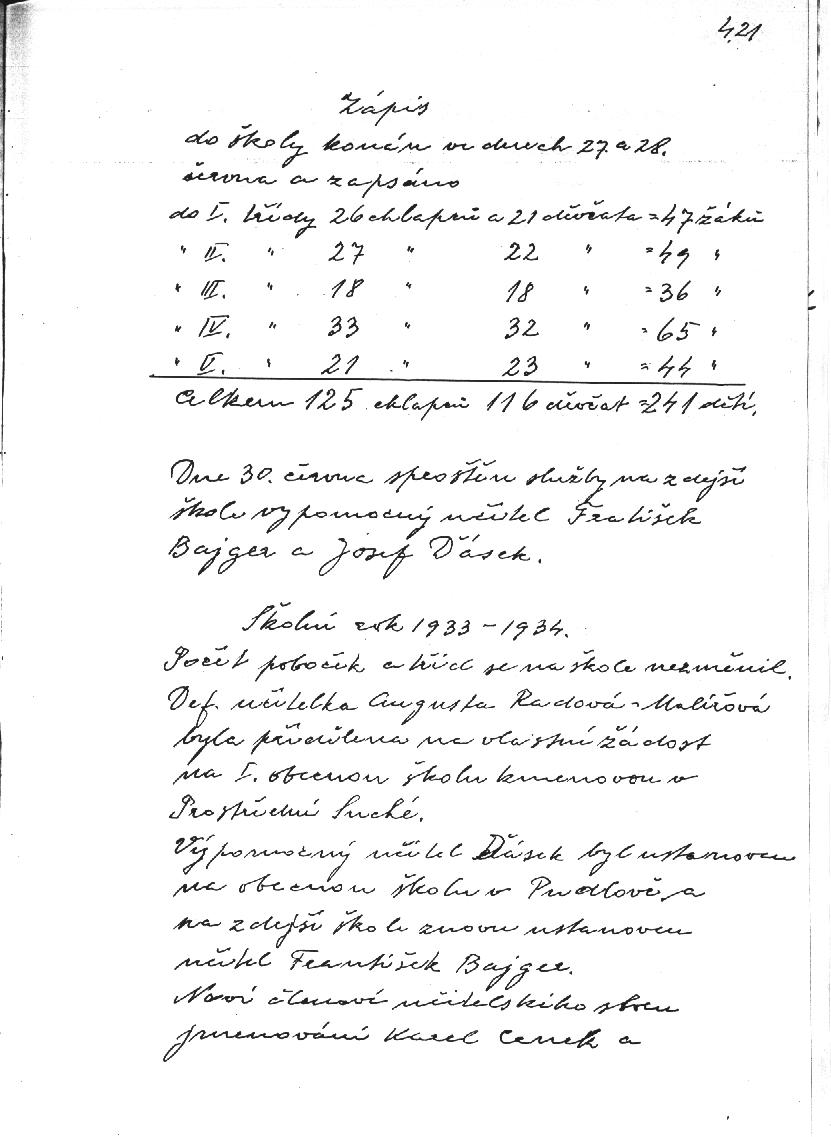 421
Zápis
do školy konán ve dnech 27 a 28.
června a zapsáno
do I. třídy 26 chlapců a 21 děvčata = 47 žáků
" II. " 27 " 22 " = 49 "
" III. " 18 " 18 " = 36 "
" IV. " 33 " 32 " = 65 "
" V. " 21 " 23 " = 44 "
Celkem 125 chlapců 116 děvčat = 241 dětí.
Dne 30. června sproštěn služby na zdejší
škole výpomocný učitel Fratišek
Bajger a Josef Ďásek.
Školní rok 1933 – 1934.
Počet poboček a tříd se na škole nezměnil.
Def. učitelka Augusta Radová-Malířová
byla přidělena na vlastní žádost
na I. obecnou školu kmenovou v
Prostřední Suché.
Výpomocný učitel Ďásek byl ustanoven
na obecnou školu v Pudlově, a
na zdejší škole znovu ustanoven
učitel František Bajger.
Noví členové učitelského sboru
jmenováni Karel Cenek a